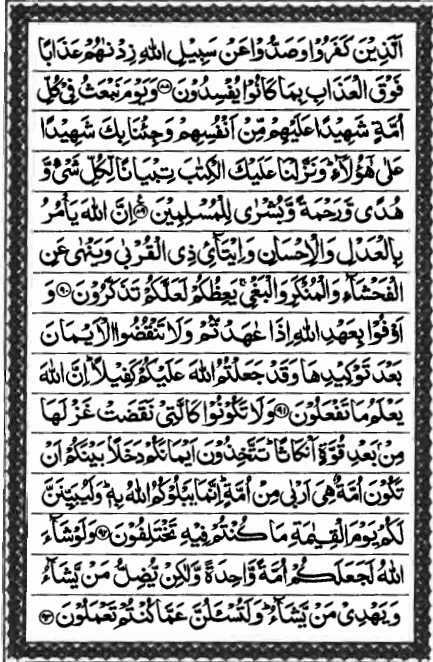 اَلَّذِيْنَ كَفَرُوْا وَصَدُّوْا عَنْ سَبِيْلِ اللّٰهِ زِدْنٰهُمْ عَذَابًا
فَوْقَ الْعَذَابِ بِمَا كَانُوْا يُفْسِدُوْنَ ﴿۸۸﴾ وَيَوْمَ نَبْعَثُ فِيْ كُلِّ
اُمَّةٍ شَهِيْدًا عَلَيْهِمْ مِّنْ اَنْفُسِهِمْ وَجِئْنَا بِكَ شَهِيْدًا
عَلٰى هٰٓؤُلَآءِ ؕ وَنَزَّلْنَا عَلَيْكَ الْكِتٰبَ تِبْيَانًا لِّكُلِّ شَيْءٍ وَّ
هُدًى وَّرَحْمَةً وَّبُشْرٰى لِلْمُسْلِمِيْنَ ﴿۸۹﴾ اِنَّ اللّٰهَ يَاْمُرُ
بِالْعَدْلِ وَالْاِحْسَانِ وَاِيْتَآئِ ذِي الْقُرْبٰى وَيَنْهٰى عَنِ
الْفَحْشَآءِ وَالْمُنْكَرِ وَالْبَغْيِ ۚ يَعِظُكُمْ لَعَلَّكُمْ تَذَكَّرُوْنَ ﴿۹۰﴾ وَ
اَوْفُوْا بِعَهْدِ اللّٰهِ اِذَا عٰهَدْتُّمْ وَلَا تَنْقُضُوا الْاَيْمَانَ
بَعْدَ تَوْكِيْدِهَا وَقَدْ جَعَلْتُمُ اللّٰهَ عَلَيْكُمْ كَفِيْلًا ؕ اِنَّ اللّٰهَ
يَعْلَمُ مَا تَفْعَلُوْنَ ﴿۹۱﴾ وَلَا تَكُوْنُوْا كَالَّتِيْ نَقَضَتْ غَزْلَهَا
مِنْۢ بَعْدِ قُوَّةٍ اَنْكَاثًا ؕ تَتَّخِذُوْنَ اَيْمَانَكُمْ دَخَلًۢا بَيْنَكُمْ اَنْ
تَكُوْنَ اُمَّةٌ هِيَ اَرْبٰى مِنْ اُمَّةٍ ؕ اِنَّمَا يَبْلُوْكُمُ اللّٰهُ بِهٖ ؕ وَلَيُبَيِّنَنَّ
لَكُمْ يَوْمَ الْقِيٰمَةِ مَا كُنْتُمْ فِيْهِ تَخْتَلِفُوْنَ ﴿۹۲﴾ وَلَوْ شَآءَ
اللّٰهُ لَجَعَلَكُمْ اُمَّةً وَّاحِدَةً وَّلٰكِنْ يُّضِلُّ مَنْ يَّشَآءُ
وَيَهْدِيْ مَنْ يَّشَآءُ ؕ وَلَتُسْـَٔلُنَّ عَمَّا كُنْتُمْ تَعْمَلُوْنَ ﴿۹۳﴾